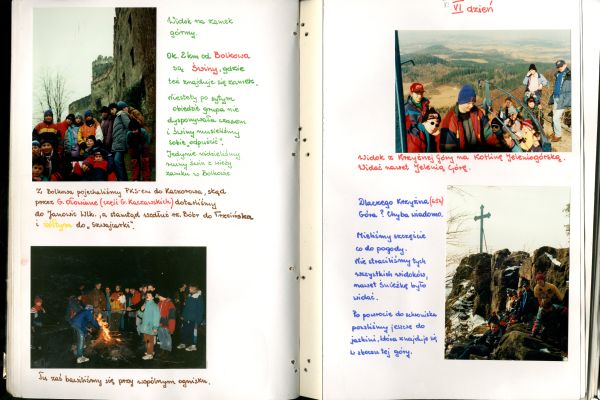 Widok na zamek
górny.
Ok. 2 km od Bolkowa
są Świny, gdzie
też znajduje się zamek.
Niestety po sytym
obiedzie grupa nie
dysponowała czasem
i Świny musieliśmy
sobie „odpuścić".
Jedynie widzieliśmy
ruiny Świn z wieży
zamku w Bolkowie
Z Bolkowa pojechaliśmy PKS-em do Kaczorowa, skąd
przez G. Ołowiane (część G. Kaczawskich) dotarliśmy
do Janowic Wlk., a stamtąd wzdłuż rz. Bóbr do Trzcińska
i żółtym do „Szwajcarki".
Tu zaś bawiliśmy się przy wspólnym ognisku.
VI dzień
Widok z Krzyżnej Góry na Kotlinę Jeleniogórską.
Widać nawet Jelenią Górę.
Dlaczego Krzyżna (654)
Góra? Chyba wiadomo.
Mieliśmy szczęście
co do pogody.
Nie straciliśmy tych
wszystkich widoków,
nawet Śnieżkę było
widać.
Po powrocie do schroniska
poszliśmy jeszcze do
jaskini, która znajduje się
w zboczu tej góry.